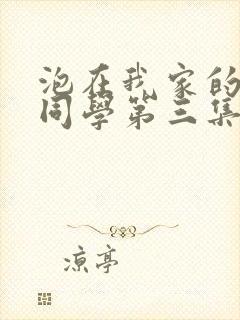 泡在我家的
同學第三集
凉亭